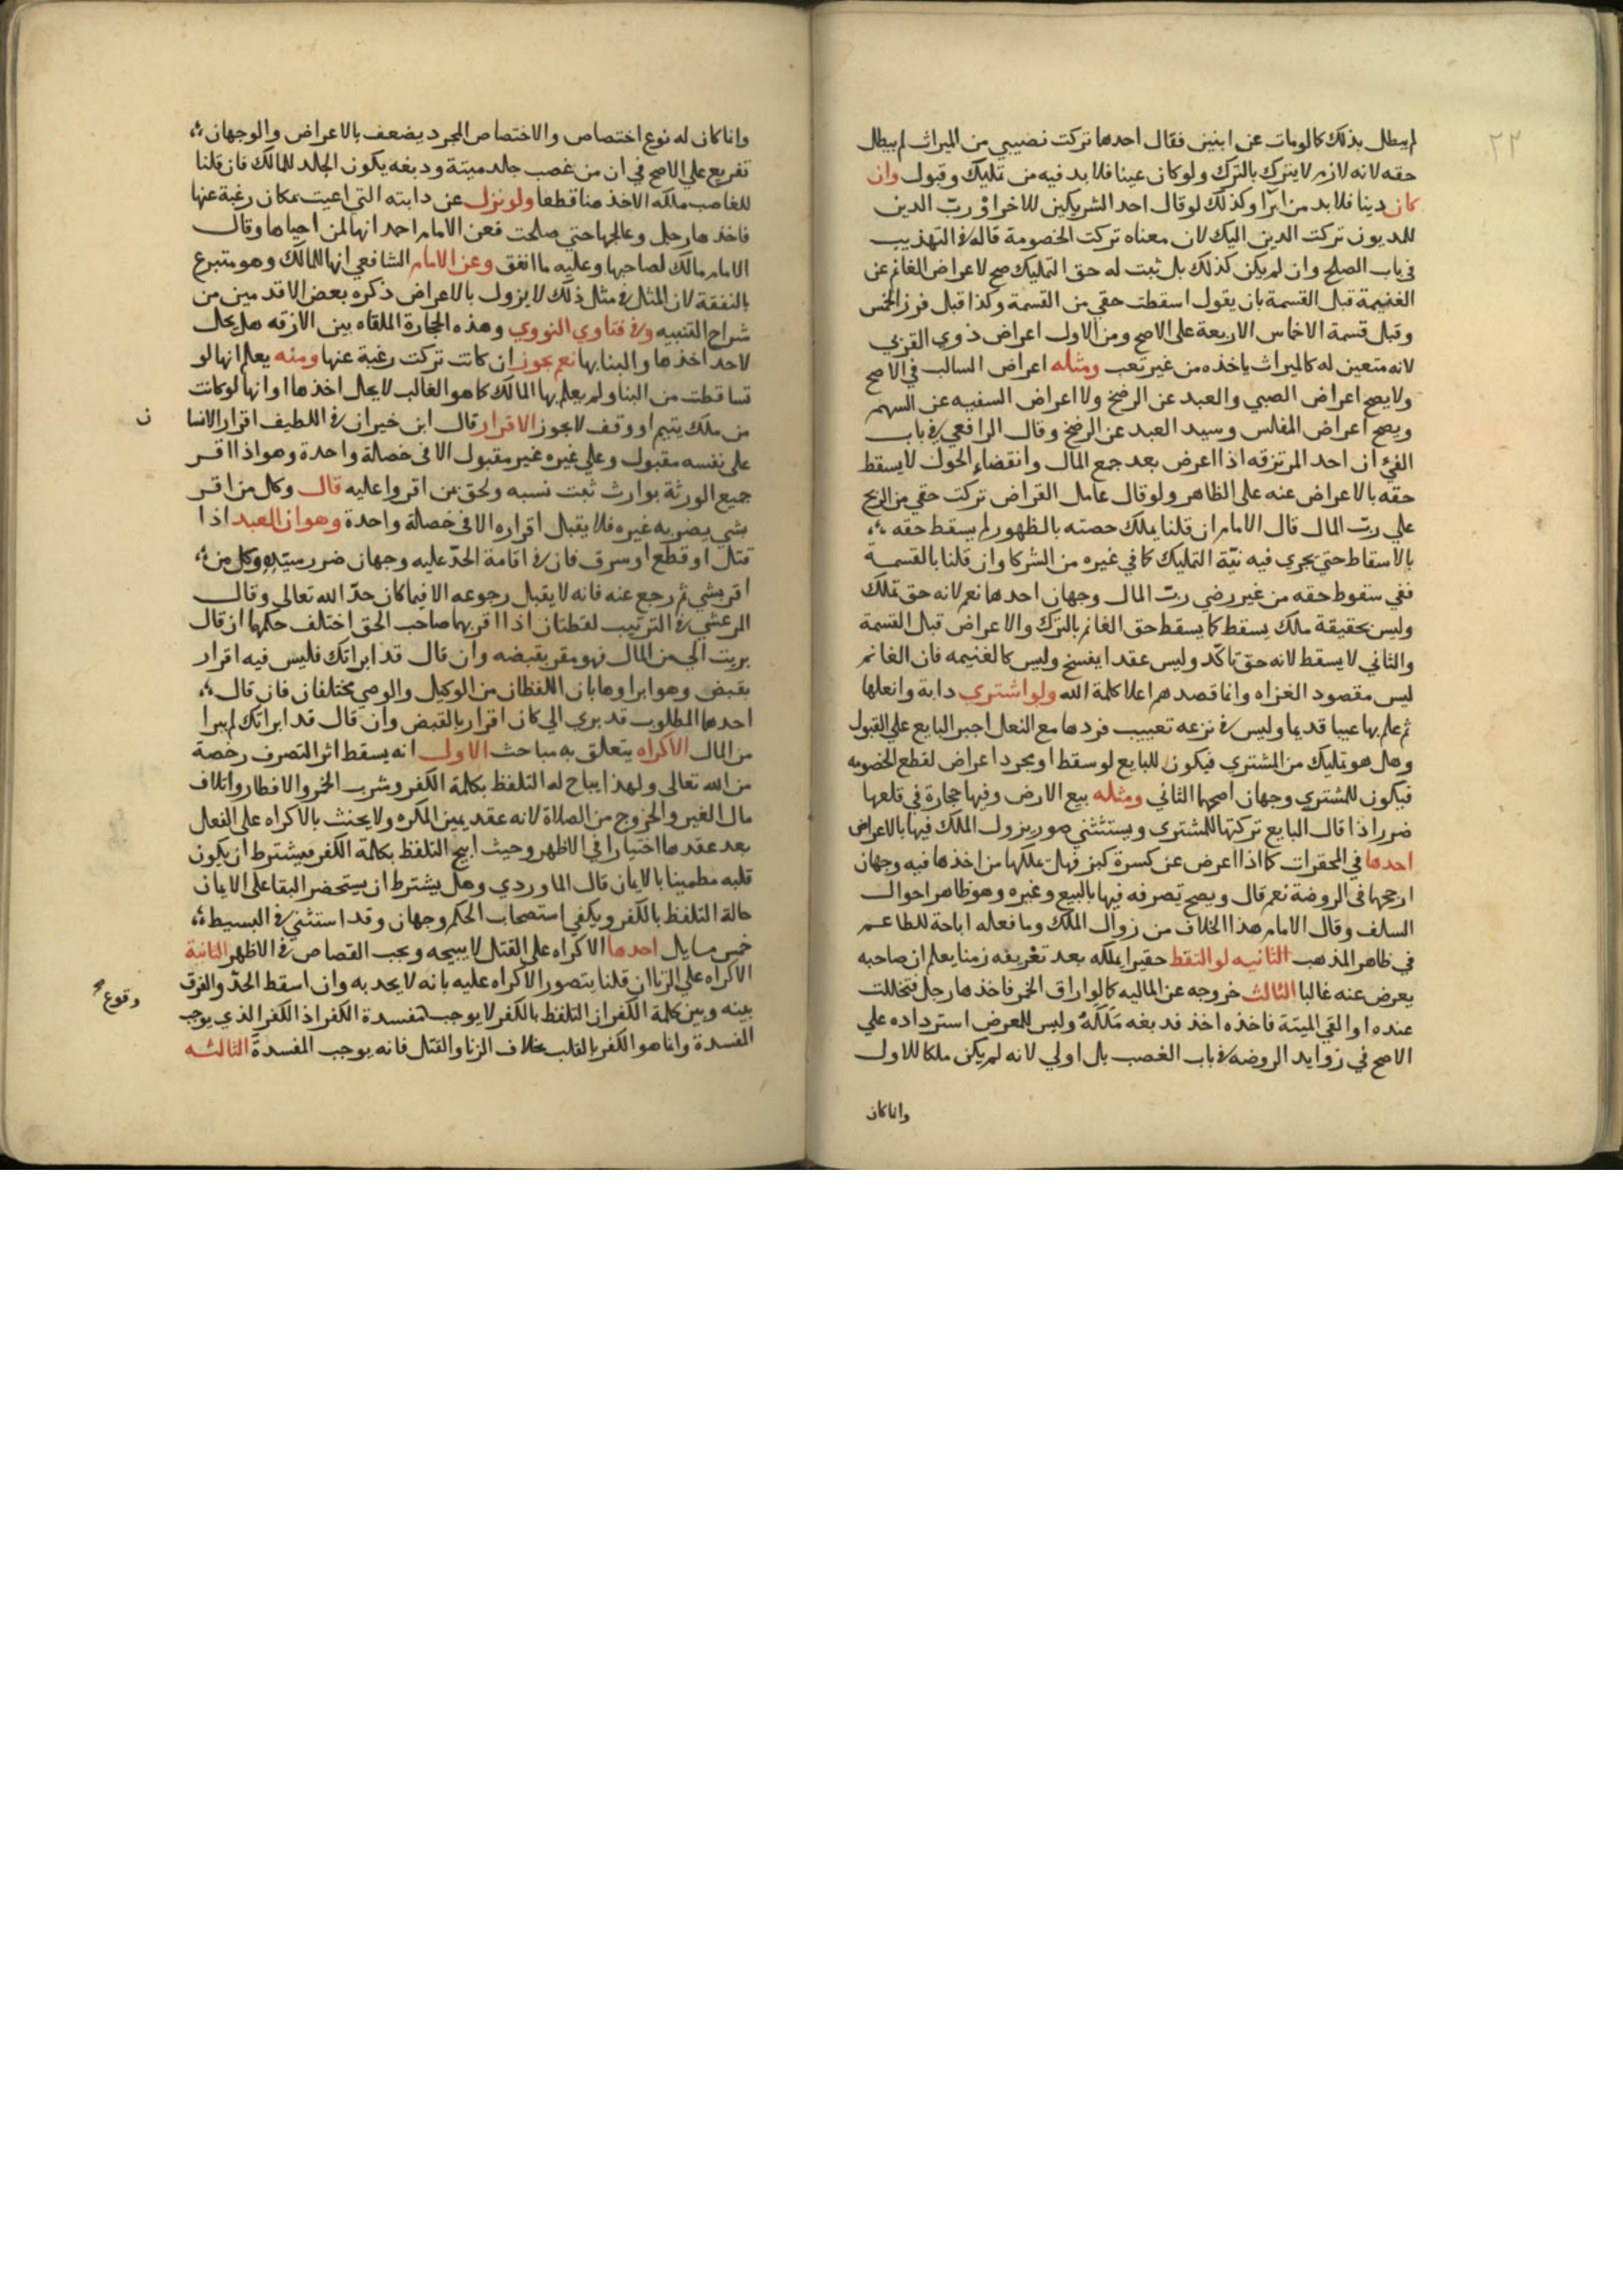 ٢٢
لم يبطل بذلك كما لومات عن ابنين فقال احدهما تركت نصيبي من الميراث لم يبطل
حقه لانه لازم لا يترك بالترك ولو كان عينا فلا بد فيه من تمليك وقبول وان
كان دينا فلا بد من ابرا وكذلك لو قال احد الشريكين للاخر او رب الدين
للمديون تركت الدين اليك لان معناه تركت الخصومة قاله في التهذيب
في باب الصلح وان لم يكن كذلك بل ثبت له حق التمليك صح لاعراض الغانم عن
الغنيمة قبل القسمة بان يقول اسقطت حقي من القسمة وكذا قبل فرز الخمس
وقبل قسمة الاخماس الاربعة على الاصح ومن الاول اعراض ذوي القربي
لانه متعين له كالميراث ياخذه من غير تعب ومثله اعراض السالب في الاصح
ولا يصح اعراض الصبي والعبد عن الرضخ ولا اعراض السفيه عن السهم
ويصح اعراض المفلس وسيد العبد عن الرضخ وقال الرافعي في باب
الفئ ان احد المرتزقه اذا اعرض بعد جمع المال وانقضاء الحول لا يسقط
حقه بالاعراض عنه على الظاهر ولو قال عامل القراض تركت حقي من الربح
علي رب المال قال الامام ان قلنا يملك حصته بالظهور لم يسقط حقه
بالاسقاط حتي يجري فيه نية التمليك كما في غيره من الشركا وان قلنا بالقسمة
ففي سقوط حقه من غير رضي رب المال وجهان احدهما نعم لانه حق تملك
وليس بحقيقة ملك يسقط كما يسقط حق الغانم بالترك والاعراض قبل القسمة
والثاني لا يسقط لانه حق تاكد وليس عقدا يفسخ وليس كالغنيمه فان الغانم
ليس مقصود الغزاه وانما قصدهم اعلا كلمة الله ولو اشتري دابة وانعلها
ثم علم بها عيبا قديما وليس في نزعه تعييب فردها مع النعل اجبر البايع علي القبول
وهل هو تمليك من المشتري فيكون للبايع لو سقط او مجرد اعراض لقطع الخصومه
فيكون للمشتري وجهان اصحهما الثاني ومثله بيع الارض وفيها حجارة في قلعها
ضرر اذا قال البايع تركتها للمشتري ويستثني صور يزول الملك فيها بالاعراض
احدها في المحقرات كما اذا اعرض عن كسرة خبز فهل يملكها من اخذها فيه وجهان
ارجحهما في الروضة نعم قال ويصح تصرفه فيها بالبيع وغيره وهو ظاهر احوال
السلف وقال الامام هذا الخلاف من زوال الملك وما فعله اباحة للطاعم
في ظاهر المذهب الثانيه لو التقط حقيرا يملكه بعد تعريفه زمنا يعلم ان صاحبه
يعرض عنه غالبا الثالث خروجه عن الماليه كما لو اراق الخمر فاخذها رجل فتخللت
عنده او القي الميتة فاخذه اخذ فدبغه ملكه وليس للمعرض استرداده علي
الاصح في زوايد الروضه في باب الغصب بل اولي لانه لم يكن ملكا للاول
وانما كان
وانما كان له نوع اختصاص والاختصاص المجرد يضعف بالاعراض والوجهان
تفريع علي الاصح في ان من غصب جلد ميتة ودبغه يكون الجلد للمالك فان قلنا
للغاصب ملكه الاخذ هنا قطعا ولو نزل عن دابته التي اعيت مكان رغبة عنها
فاخذها رجل وعالجها حتي صلحت فعن الامام احمد انها لمن احياها وقال
الامام مالك لصاحبها وعليه ما انفق وعن الامام الشافعي انها للمالك وهو متبرع
بالنفقة لان المثل في مثل ذلك لا يزول بالاعراض ذكره بعض الاقدمين من
شراح التنبيه وفي فتاوي النووي وهذه الحجارة الملقاه بين الازقه هل يحل
لاحد اخذها والبنا بها نعم يجوز ان كانت تركت رغبة عنها ومنه يعلم انها لو
تساقطت من البنا ولم يعلم بها المالك كما هو الغالب لا يحل اخذها او انها لو كانت
من ملك يتيم او وقف لا يجوز الاقرار قال ابن خيران في اللطيف اقرار الانسا
ن
على نفسه مقبول وعلي غيره غير مقبول الا في خصلة واحدة وهو اذا اقر
جميع الورثة بوارث ثبت نسبه ولحق بمن اقروا عليه قال وكل من اقر
بشي يضر به غيره فلا يقبل اقراره الا في خصلة واحدة وهو ان العبد اذا
قتل او قطع او سرق فان في اقامة الحد عليه وجهان ضرر سيده وكل من
اقر بشي ثم رجع عنه فانه لا يقبل رجوعه الا فيما كان حد الله تعالى وقال
المرعشي في الترتيب لفظتان اذا اقر بهما صاحب الحق اختلف حكمهما ان قال
بريت الي من المال فهو مقر بقبضه وان قال قد ابراتك فليس فيه اقرار
بقبض وهو ابرا وهاتان اللفظان من الوكيل والوصي مختلفان فان قال
احدهما المطلوب قد بري الي كان اقرار بالقبض وان قال قد ابراتك لم يبرا
من المال الاكراه يتعلق به مباحث الاول انه يسقط اثر التصرف رخصة
من الله تعالى ولهذا يباح له التلفظ بكلمة الكفر وشرب الخمر والافطار واتلاف
مال الغير والخروج من الصلاة لانه عقد يمين المكره ولا يحنث بالاكراه على الفعل
بعد عقدها اختيارا في الاظهر وحيث ابيح التلفظ بكلمة الكفر فيشترط ان يكون
قلبه مطمينا بالايمان قال الماوردي وهل يشترط ان يستحضر البقا على الايمان
حالة التلفظ بالكفر ويكفي استصحاب الحكم وجهان وقد استثني في البسيط
خمس مسايل احدها الاكراه على القتل لا يبيحه ويجب القصاص في الاظهر الثانية
الاكراه علي الزنا ان قلنا يتصور الاكراه عليه بانه لا يحد به وان اسقط الحد والفرق
بينه وبين كلمة الكفر ان التلفظ بالكفر لا يوجب مفسدة الكفر اذ الكفر الذي يوجب
وقوع
المفسدة وانما هو الكفر بالقلب بخلاف الزنا والقتل فانه يوجب المفسدة الثالثه